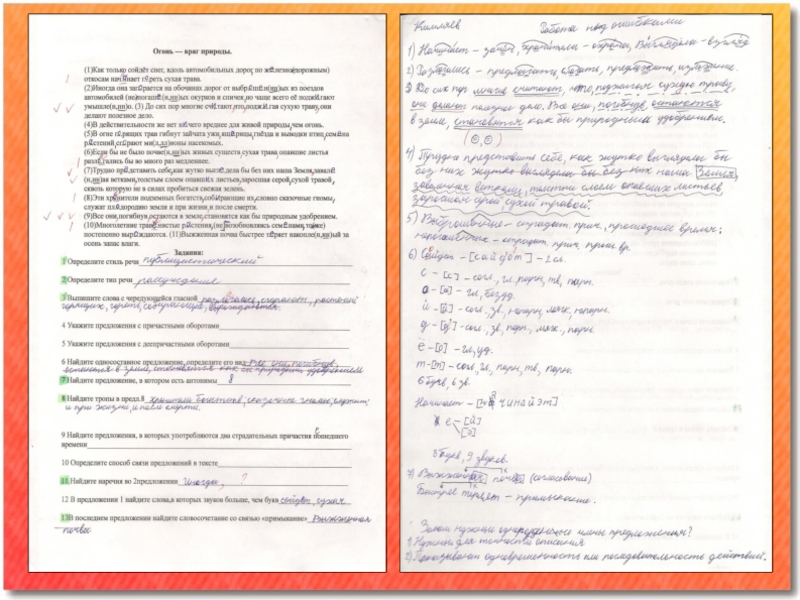 Огонь — враг природы.
(1)Как только сойдёт снег, вдоль автомобильных дорог, по железно(дорожным)
откосам начинает гореть сухая трава.
(2)Иногда она загорается на обочинах дорог от выброше(н,нн)ых из поездов
автомобилей (не)потуше(н,нн)ых окурков и спичек, но чаще всего её поджигают
умышле(н,нн)о. (3) До сих пор многие считают, что, поджигая сухую траву, они
делают полезное дело.
(4)В действительности же нет ничего вреднее для живой природы, чем огонь.
(5)В огне горящих трав гибнут зайчата, ужи, ящерицы, гнёзда и выводки птиц, семена
растений, сгорают ми(л,лл)ионы насекомых.
(6)Если бы не было почве(н,нн)ых живых существ, сухая трава, опавшие листья
разлагались бы во много раз медленнее.
(7)Трудно представить себе, как жутко выглядела бы без них наша Земля, завале
(н,нн)ая ветками, толстым слоем опавших листьев, заросшая серой, сухой травой,
сквозь которую не в силах пробиться свежая зелень.
(8)Эти хранители подземных богатств, собирающие их, словно сказочные гномы,
служат плодородию земли и при жизни, и после смерти.
(9)Все они, погибнув, остаются в земле, становятся как бы природным удобрением.
(10)Многолетние травянистые растения, (не)возобновляясь семенами, тоже
постепенно вырождаются. (11)Выжженная почва быстрее теряет накопле(н,нн)ый за
осень запас влаги.
Задания:
1 Определите стиль речи публицистический
2 Определите тип речи рассуждение
3 Выпишите слова с чередующейся гласной разлагались, сгорают, растений
горящих, гореть, собирающие, вырождаются.
4 Укажите предложения с причастными оборотами
5 Укажите предложения с деепричастными оборотами
6 Найдите односоставное предложение, определите его вид Все они, погибнув,
остаются в земле, становятся как бы природным удобрением
7 Найдите предложение, в котором есть антонимы 8
8 Найдите тропы в предл.8 хранители богатств, сказочные гномы, служат
и при жизни, и после смерти.
9 Найдите предложения, в которых употребляются два страдательных причастия прошедшего
времени
10 Определите способ связи предложений в тексте
11 Найдите наречия во 2предложении Иногда, ?
12 В предложении 1 найдите слова, в которых звуков больше, чем букв сойдёт, сухая
13В последнем предложении найдите словосочетание со связью «примыкание» Выжженная
почва
Работа над ошибками
1) Начинает – зачин, хранители – охрана, Выглядела – взгляд
3) До сих пор многие считают, что, поджигая сухую траву,
они делают полезное дело. Все они, погибнув, остаются
в земле, становятся как бы природным удобрением.
4) Трудно представить себе, как жутко выглядела бы
без них жутко выглядела бы без них наша Земля,
заваленная ветками, толстым слоем опавших листьев
заросшая серой сухой травой.
5) Выброшенные – страдат. прич., прошедшее время;
6) Сойдёт – [сайд'от] – 2 сл.
с – [с] – согл., гл. парн, тв, парн.
о – [а] – гл, безуд.
й – [й'] – согл., зв., непарн, мягк, непарн.
д – [д'] – согл, зв, парн., мягк., парн.
ё – [о] – гл, уд.
т – [т] – согл, гл, парн, тв, парн.
6 букв, 6 зв.
Начинает – [начинайэт]
е – [й]
[э]
8 букв, 9 звуков.
7) Выжженная почва (согласование)
Быстрее теряет – примыкание.
Зачем нужны однородные члены предложения?
1) Нужны для точности описания
2) Показывают одновременность или последовательность действий.